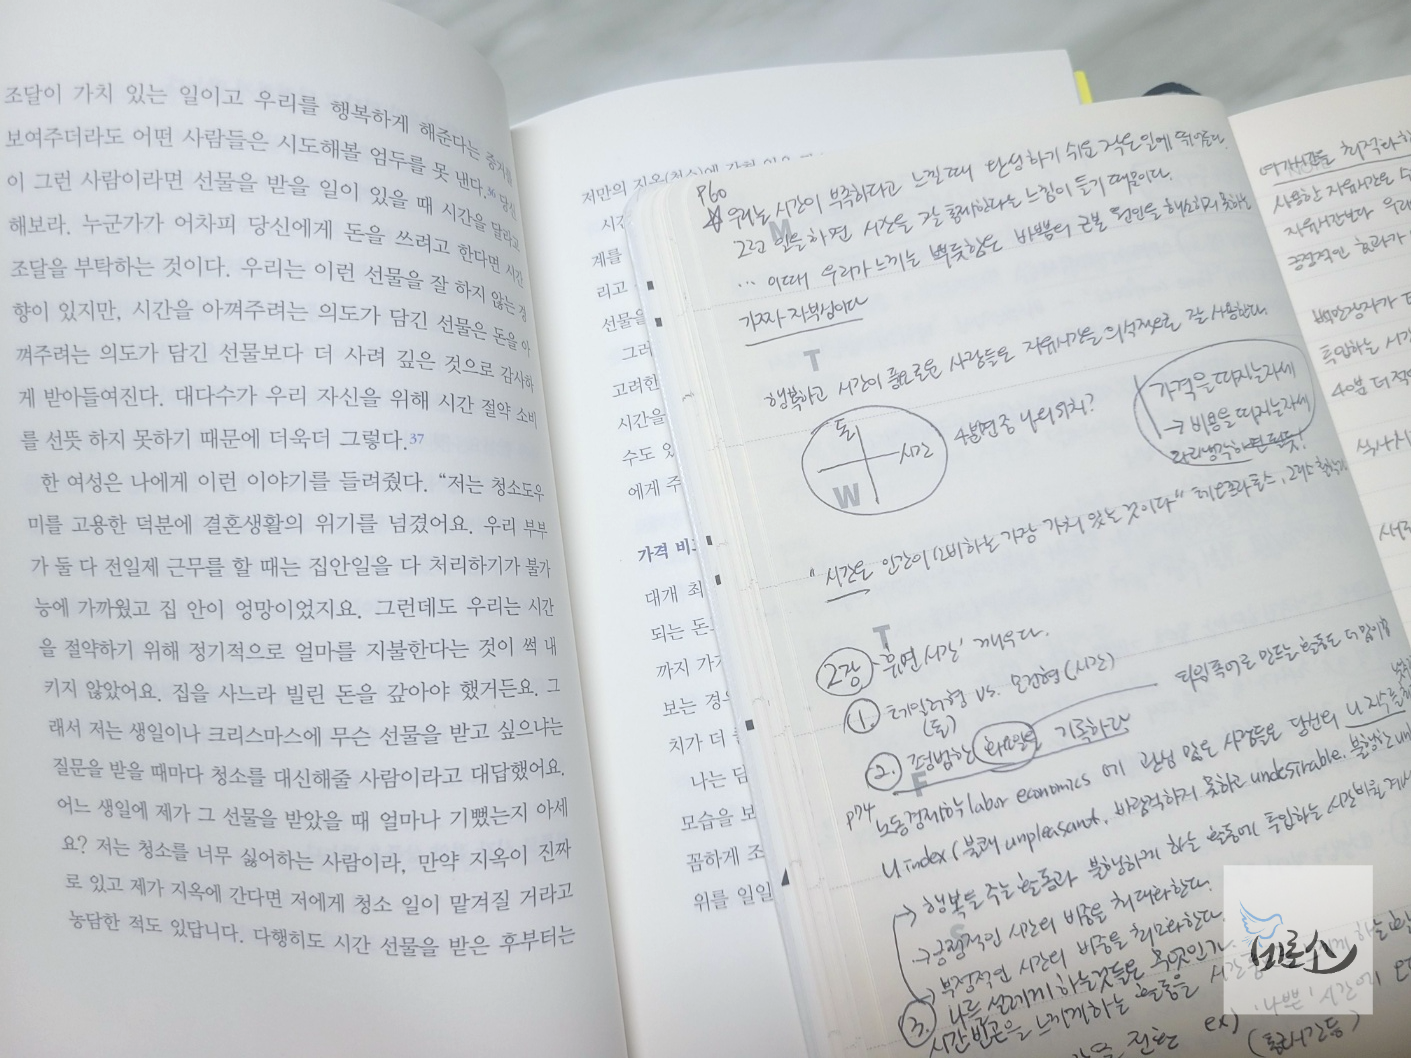 조달이 가치 있는 일이고 우리를 행복하게 해준다는 증거를
보여주더라도 어떤 사람들은 시도해볼 엄두를 못 낸다.36 당신
이 그런 사람이라면 선물을 받을 일이 있을 때 시간을 달라고
해보라. 누군가가 어차피 당신에게 돈을 쓰려고 한다면 시간
조달을 부탁하는 것이다. 우리는 이런 선물을 잘 하지 않는 경
향이 있지만, 시간을 아껴주려는 의도가 담긴 선물은 돈을 아
껴주려는 의도가 담긴 선물보다 더 사려 깊은 것으로 감사하
게 받아들여진다. 대다수가 우리 자신을 위해 시간 절약 소비
를 선뜻 하지 못하기 때문에 더욱더 그렇다.37
한 여성은 나에게 이런 이야기를 들려줬다. “저는 청소도우
미를 고용한 덕분에 결혼생활의 위기를 넘겼어요. 우리 부부
가 둘 다 전일제 근무를 할 때는 집안일을 다 처리하기가 불가
능에 가까웠고 집 안이 엉망이었지요. 그런데도 우리는 시간
을 절약하기 위해 정기적으로 얼마를 지불한다는 것이 썩 내
키지 않았어요. 집을 사느라 빌린 돈을 갚아야 했거든요. 그
래서 저는 생일이나 크리스마스에 무슨 선물을 받고 싶으냐는
질문을 받을 때마다 청소를 대신해줄 사람이라고 대답했어요.
어느 생일에 제가 그 선물을 받았을 때 얼마나 기뻤는지 아세
요? 저는 청소를 너무 싫어하는 사람이라, 만약 지옥이 진짜
로 있고 제가 지옥에 간다면 저에게 청소 일이 맡겨질 거라고
농담한 적도 있답니다. 다행히도 시간 선물을 받은 후부터는
저만의 지옥(청소)에
시간
계를
리고
선물을
그러
고려한
시간을
수도 있
에게 주
가격 비
대개 최
되는 돈
까지 가
보는 경우
치가 더
나는 담
모습을 보
꼼하게 조
위를 일일
P60
우리는 시간이 부족하다고 느낄 때 달성하기 쉬운 작은 일에 뛰어든다.
그런 일을 하면 시간을 잘 통제한다는 느낌이 들기 때문이다.
… 이때 우리가 느끼는 뿌듯함은 바쁨의 근본 원인을 해소하지 못하는
가짜 자부심이다
M
T
W
T
F
S
행복하고 시간이 풍요로운 사람들은 자유시간을 의식적으로 잘 사용한다.
돈
시간
4분면 중 나의 위치?
가격을 따지는 자세
→ 비용을 따지는 자세
“시간은 인간이 소비하는 가장 가치 있는 것이다”
2장 '유연시간' 깨우다.
1. 테일러형 vs. 모건형(시간)
(돈)
2. 평범한 화요일을 기록하라
p74 노동경제학 labor economics 에 관심 있는 사람들은 당신의 U 지수를
U index (불쾌 unpleasant, 바람직하지 못하고 undesirable. 불행한
→ 행복을 주는 활동과 불행하게 하는 활동에 투입하는 시간비율
→ 긍정적인 시간의 비중을 최대화한다.
→ 부정적인 시간의 비중을 최소화한다.
3. 나를 설레게 하는 것들은 무엇인가
시간빈곤을 느끼게하는 활동을
ex) '나쁜' 시간에
(통근시간 등)
여가시간을 최적화
사용한 자유시간은
자유시간보다 우리
긍정적인 효과가
백만장자가
투입하는 시간
40분 더 적
식사시
새로
비로소